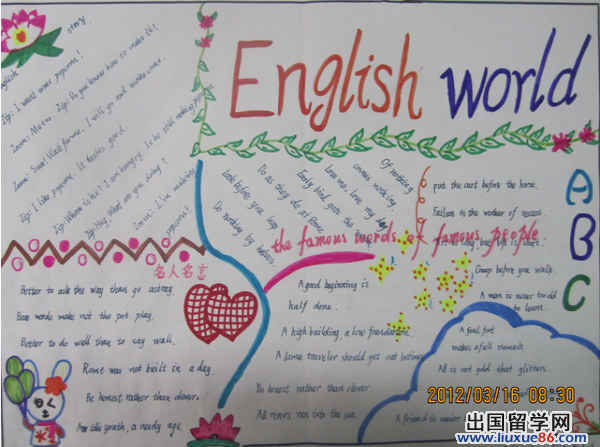 English world
story
English
Zip: I want some popcorn!
Zoom: Me too. Zip: Do you know how to make it?
Zoom: Sure! Wait for me. I will go and make some.
Zip: I like popcorn. It tastes good.
Zip: Where is he? I am hungry. Is he still making popcorn
Zip: Hey, What are you doing?
Zoom: I'm making
popcorn!
Of nothing
comes nothing
Love me, love my dog
Early bird gets the
Do as they do at Rome.
Look before you leap
Do nothing by halves.
put the cart before the horse.
Failure is the mother of success.
Creep before you walk.
A man is never too old
to learn.
A
B
C
the famous words of famous people
名人名言
Better to ask the way than go astray.
words make not the pot play.
Better to do well than to say well.
Rome was not built in a day.
Be honest rather than clever.
An idle youth, a needy age.
A good beginning is
half done.
A high building, a low foundation.
A lame traveler should get out betimes
Be honest rather than clever.
All rivers run into the sea.
A fool
makes a full stomach
All is not gold that glitters.
A friend is easier
2012/03/16 08:30
出国留学网
www.liuxue86.com